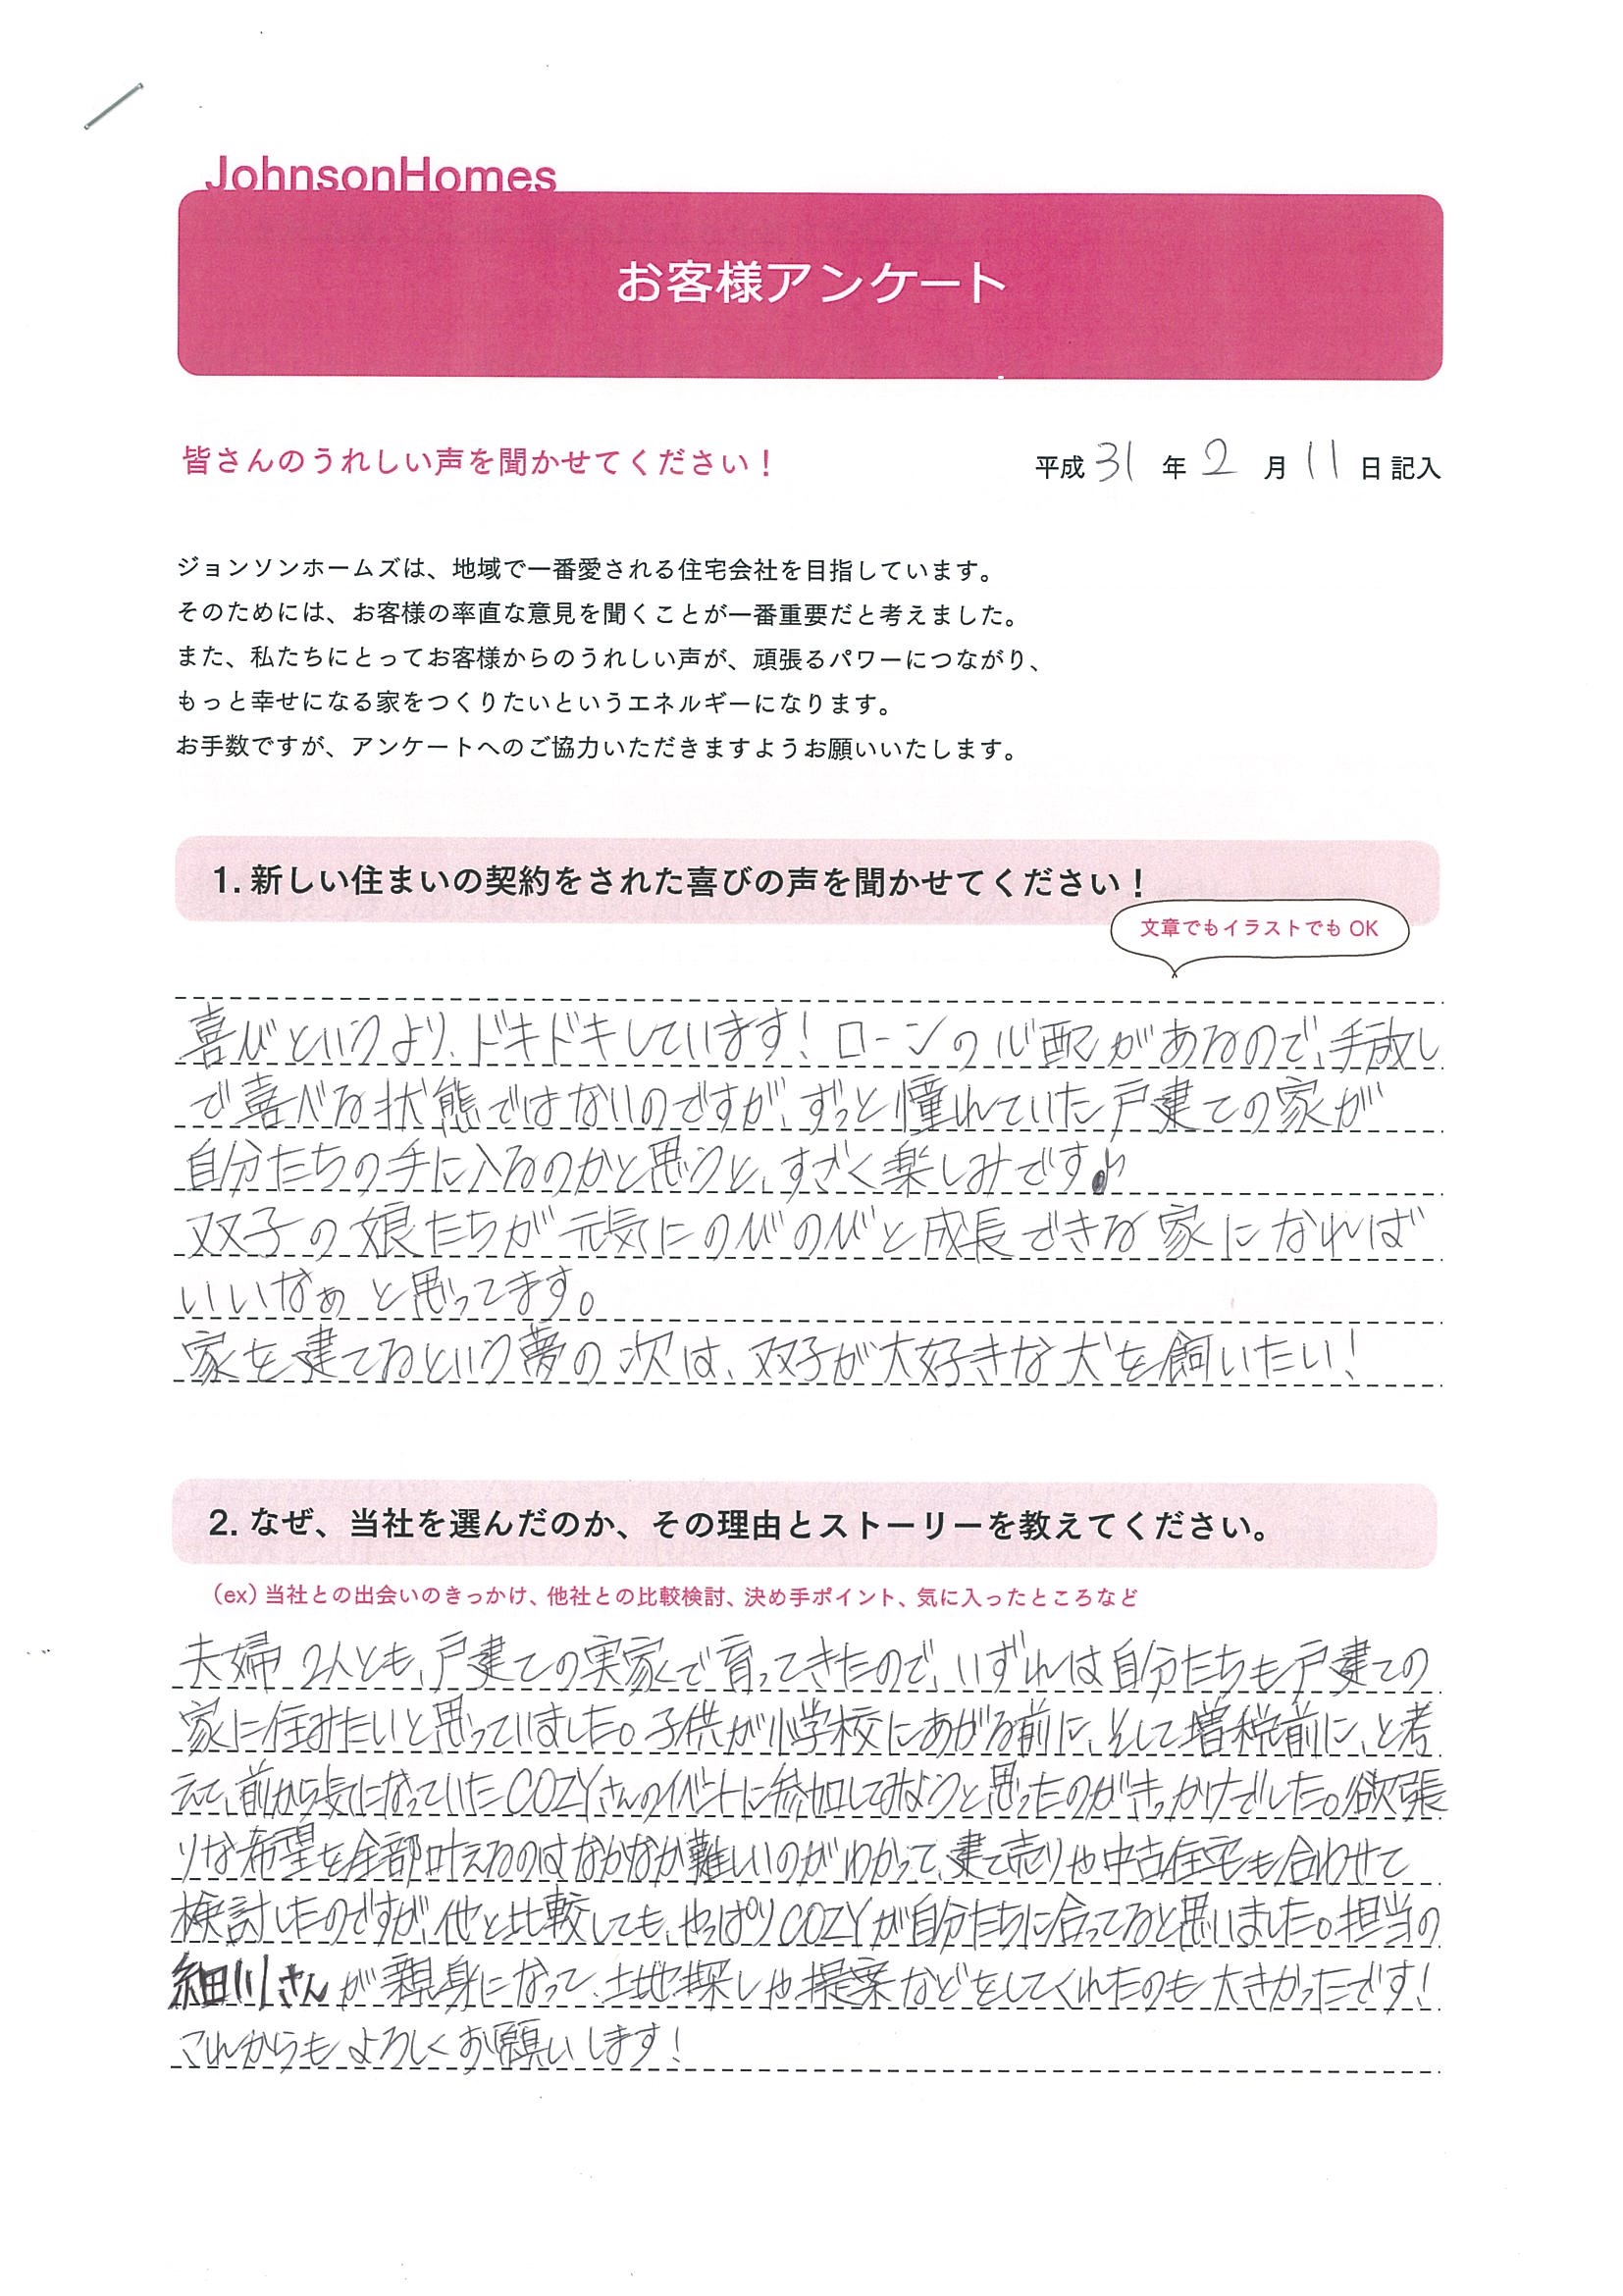 JohnsonHomes
お客様アンケート
皆さんのうれしい声を聞かせてください！
平成 31 年 2 月 11 日 記入
ジョンソンホームズは、地域で一番愛される住宅会社を目指しています。
そのためには、お客様の率直な意見を聞くことが一番重要だと考えました。
また、私たちにとってお客様からのうれしい声が、頑張るパワーにつながり、
もっと幸せになる家をつくりたいというエネルギーになります。
お手数ですが、アンケートへのご協力いただきますようお願いいたします。
1. 新しい住まいの契約をされた喜びの声を聞かせてください！
文章でもイラストでも OK
喜びというより、ドキドキしています！ローンの心配があるので、手放し
で喜べる状態ではないのですが、ずっと憧れていた戸建ての家が
自分たちの手に入るのかと思うと、すごく楽しみです♪
双子の娘たちが元気にのびのびと成長できる家になれば
いいなぁと思ってます。
家を建てるという夢の次は、双子が大好きな犬を飼いたい！
2. なぜ、当社を選んだのか、その理由とストーリーを教えてください。
（ex）当社との出会いのきっかけ、他社との比較検討、決め手ポイント、気に入ったところなど
夫婦2人とも、戸建ての実家で育ってきたので、いずれは自分たちも戸建ての
家に住みたいと思っていました。子供が小学校にあがる前に、そして増税前に、と考
えて、前から気になっていたCOZYさんのイベントに参加してみようと思ったのがきっかけでした。欲張
りな希望を全部叶えるのはなかなか難しいのがわかって、建て売りや中古住宅も合わせて
検討したのですが、他と比較しても、やっぱりCOZYが自分たちに合ってると思いました。担当の
細川さんが親身になって、土地探しや提案などをしてくれたのも大きかったです！
これからもよろしくお願いします！